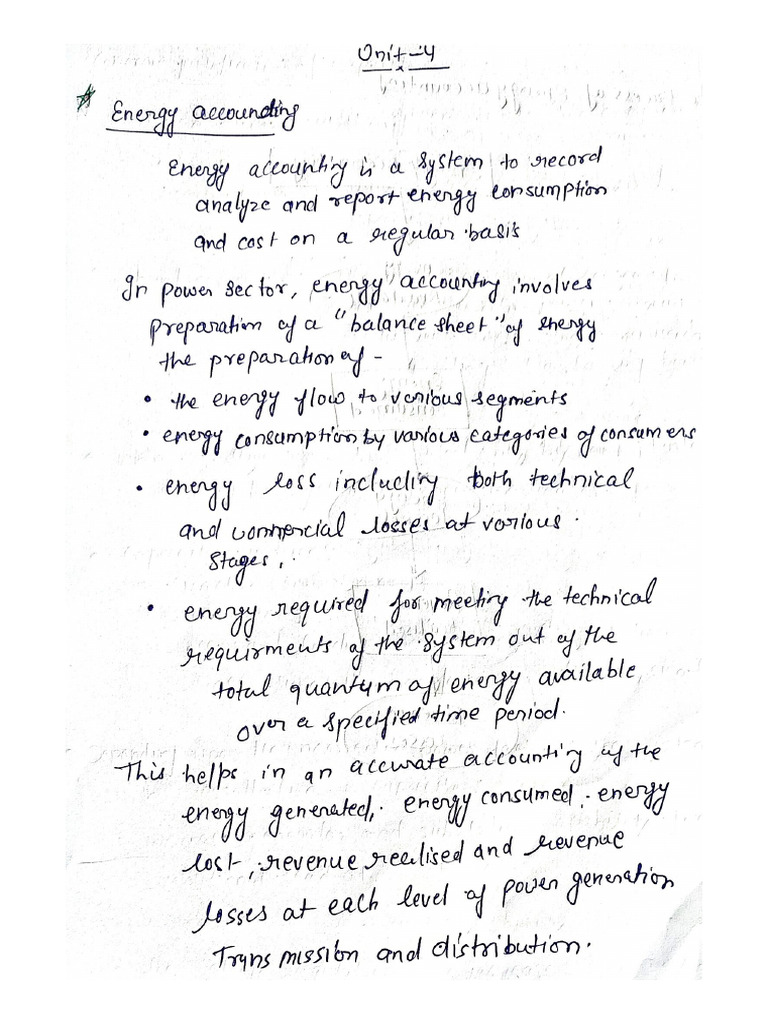 Unit-4
Energy accounting
Energy accounting is a system to record
analyze and report energy consumption
and cost on a regular basis
In power sector, energy accounting involves
preparation of a "balance sheet" of energy
the preparation of -
• the energy flow to various segments
• energy consumption by various categories of consumers
• energy loss including both technical
and commercial losses at various
stages.
• energy required for meeting the technical
requirments of the system out of the
total quantum of energy available
over a specified time period.
This helps in an accurate accounting of the
energy generated, energy consumed, energy
lost, revenue realised and revenue
losses at each level of power generation
Transmission and distribution.